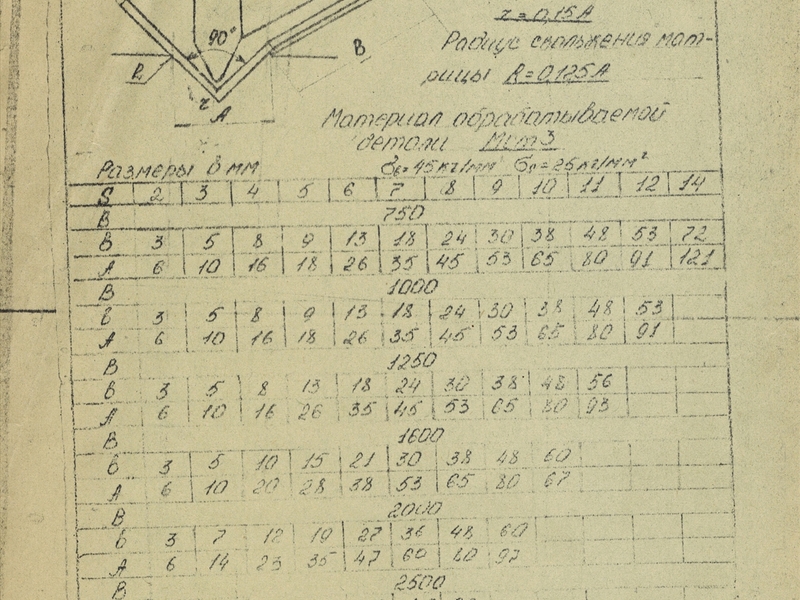 r = 0,15A
90°
B
R
r
A
Радиус скольжения мат-
рицы R=0,125A
Материал обрабатываемой
детали Мст3
Размеры в мм σв=45кг/мм² σп=25кг/мм²
S 2 3 4 5 6 7 8 9 10 11 12 14
B 750
в 3 5 8 9 13 18 24 30 38 48 53 72
A 6 10 16 18 26 35 45 53 65 80 91 121
B 1000
в 3 5 8 9 13 18 24 30 38 48 53
A 6 10 16 18 26 35 45 53 65 80 91
B 1250
в 3 5 8 13 18 24 30 38 48 56
A 6 10 16 26 35 45 53 65 80 93
B 1600
в 3 5 10 15 21 30 38 48 60
A 6 10 20 28 38 53 65 80 67
B 2000
в 3 7 12 19 27 36 48 60
A 6 14 23 35 47 60 80 97
B 2500